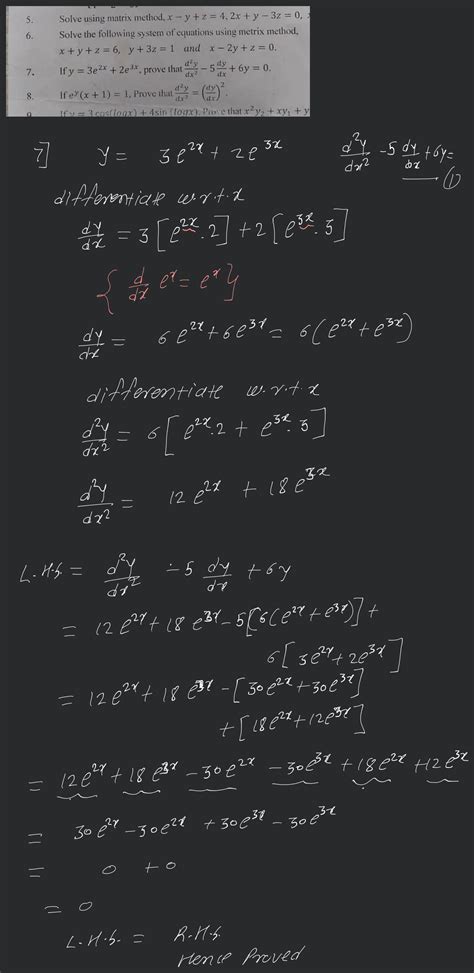 5. Solve using matrix method, x − y + z = 4, 2x + y − 3z = 0,
6. Solve the following system of equations using metrix method,
x + y + z = 6, y + 3z = 1 and x − 2y + z = 0.
7. If y = 3e^{2x} + 2e^{3x}, prove that d²y/dx² − 5 dy/dx + 6y = 0.
8. If e^y(x + 1) = 1, Prove that d²y/dx² = (dy/dx)².
9. If y = 3 cos(logx) + 4sin (logx). Prove that x²y₂ + xy₁ + y
7] y = 3e^{2x} + 2e^{3x} d²y/dx² − 5 dy/dx + 6y =
(1)
differentiate w.r.t.x
dy/dx = 3[e^{2x}.2] + 2[e^{3x}.3]
{d/dx e^x = e^x}
dy/dx = 6e^{2x} + 6e^{3x} = 6(e^{2x} + e^{3x})
differentiate w.r.t.x
d²y/dx² = 6[e^{2x}.2 + e^{3x}.3]
d²y/dx² = 12e^{2x} + 18e^{3x}
L.H.S = d²y/dx² − 5 dy/dx + 6y
= 12e^{2x} + 18e^{3x} − 5[6(e^{2x} + e^{3x})] +
6[3e^{2x} + 2e^{3x}]
= 12e^{2x} + 18e^{3x} − [30e^{2x} + 30e^{3x}]
+ [18e^{2x} + 12e^{3x}]
= 12e^{2x} + 18e^{3x} − 30e^{2x} − 30e^{3x} + 18e^{2x} + 12e^{3x}
= 30e^{2x} − 30e^{2x} + 30e^{3x} − 30e^{3x}
= 0 + 0
= 0
L.H.S. = R.H.S.
Hence Proved